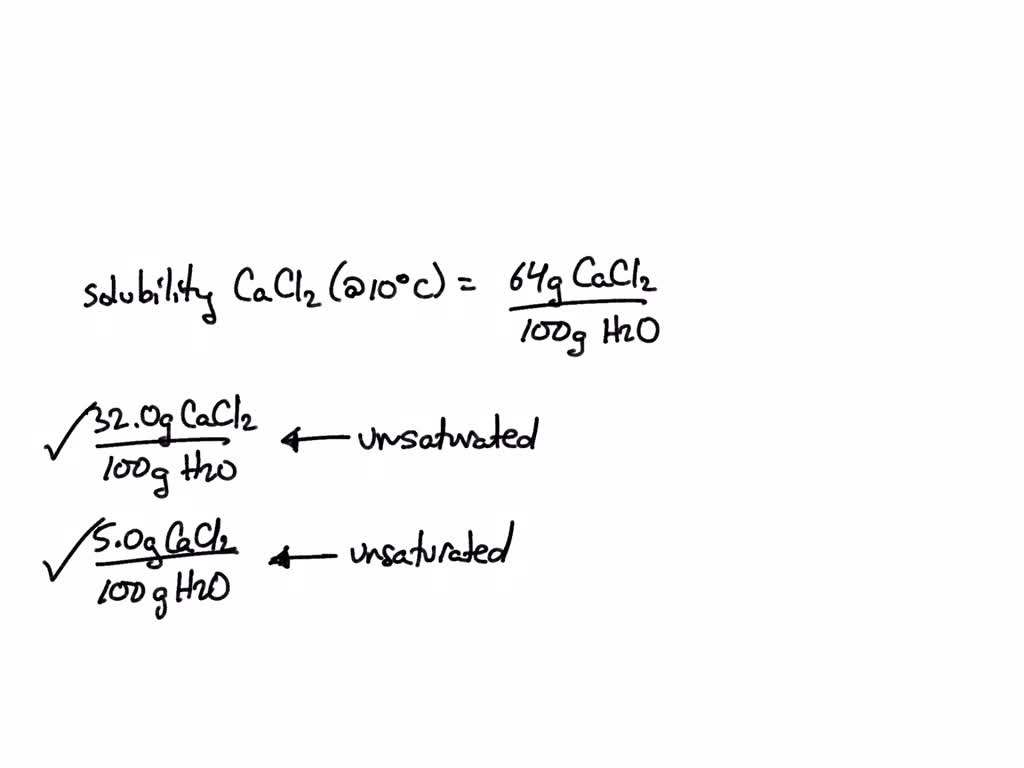 solubility CaCl2 (@10°C) = 64g CaCl2 / 100g H2O
32.0g CaCl2 / 100g H2O ← unsaturated
5.0g CaCl2 / 100g H2O ← unsaturated